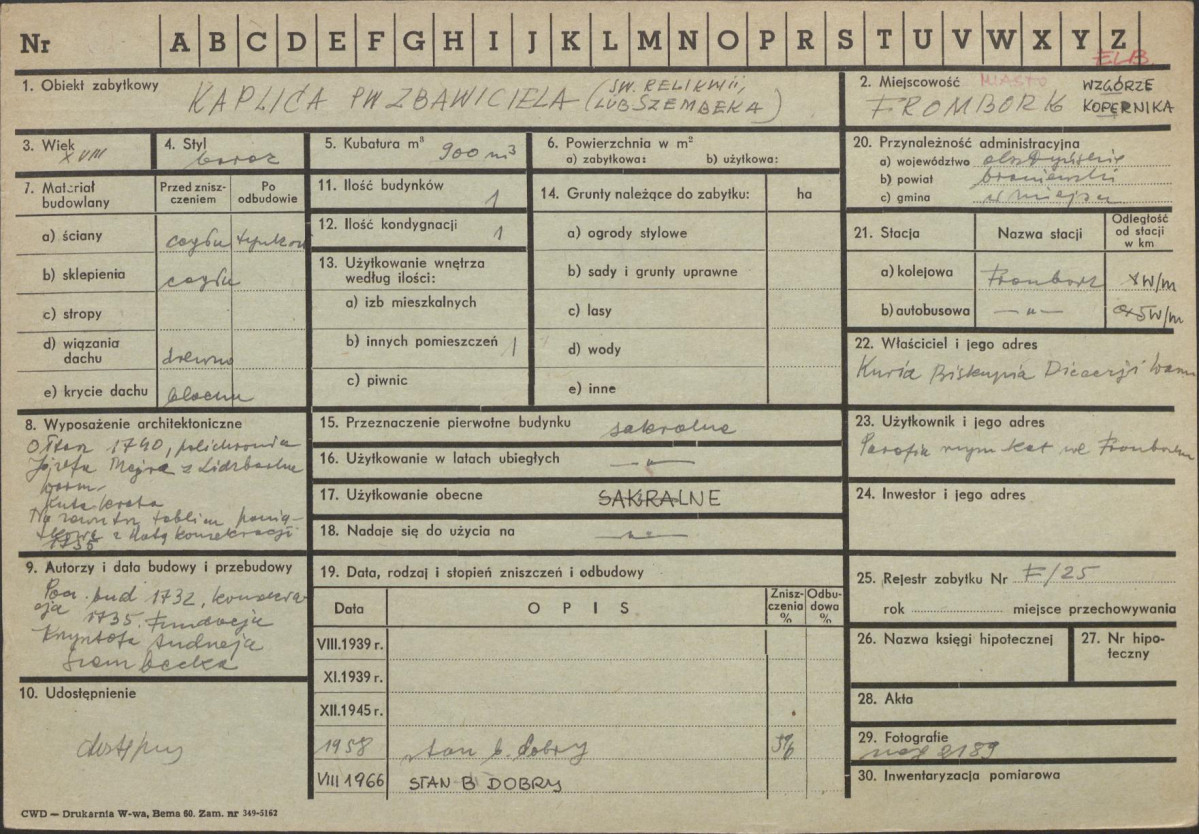 Nr A B C D E F G H I J K L M N O P R S T U V W X Y Z
ELB
1. Obiekt zabytkowy KAPLICA PW ZBAWICIELA (ŚW. RELIKWII,
LUB SZEMBEKA)
2. Miejscowość MIASTO WZGÓRZE
FROMBORK KOPERNIKA
3. Wiek XVIII
4. Styl barok
5. Kubatura m³ 900 m³
6. Powierzchnia w m²
a) zabytkowa: b) użytkowa:
20. Przynależność administracyjna
a) województwo olsztyńskie
b) powiat braniewski
c) gmina w miejscu
7. Materiał budowlany
Przed zniszczeniem
Po odbudowie
a) ściany cegła tynkow
b) sklepienia cegła
c) stropy
d) wiązania dachu drewno
e) krycie dachu blacha
11. Ilość budynków 1
12. Ilość kondygnacji 1
13. Użytkowanie wnętrza
według ilości:
a) izb mieszkalnych
b) innych pomieszczeń 1
c) piwnic
14. Grunty należące do zabytku: ha
a) ogrody stylowe
b) sady i grunty uprawne
c) lasy
d) wody
e) inne
21. Stacja Nazwa stacji Odległość od stacji w km
a) kolejowa Frombork
b) autobusowa —„—
22. Właściciel i jego adres
Kuria Biskupia Diecezji Warm
8. Wyposażenie architektoniczne
Ołtarz 1740, polichromia
Józefa Majra z Lidzbarka
Warm.
Kuta krata
Na zewnątrz tablica pamią-
tkowa z datą konsekracji
1735
15. Przeznaczenie pierwotne budynku sakralne
16. Użytkowanie w latach ubiegłych —„—
17. Użytkowanie obecne SAKRALNE
18. Nadaje się do użycia na —„—
23. Użytkownik i jego adres
Parafia rzym kat we Fromborku
24. Inwestor i jego adres
9. Autorzy i data budowy i przebudowy
bud 1732, konsekra-
cja 1735. Fundacja
Krzysztofa Andrzeja
Szembecka
10. Udostępnienie
dostępny
19. Data, rodzaj i stopień zniszczeń i odbudowy
Data OPIS Zniszczenia % Odbudowa %
VIII.1939 r.
XI.1939 r.
XII.1945 r.
1958 stan b. dobry
VIII 1966 STAN B DOBRY
25. Rejestr zabytku Nr F/25
rok miejsce przechowywania
26. Nazwa księgi hipotecznej
27. Nr hipoteczny
28. Akta
29. Fotografie
neg 2189
30. Inwentaryzacja pomiarowa
CWD — Drukarnia W-wa, Bema 60. Zam. nr 349-5162